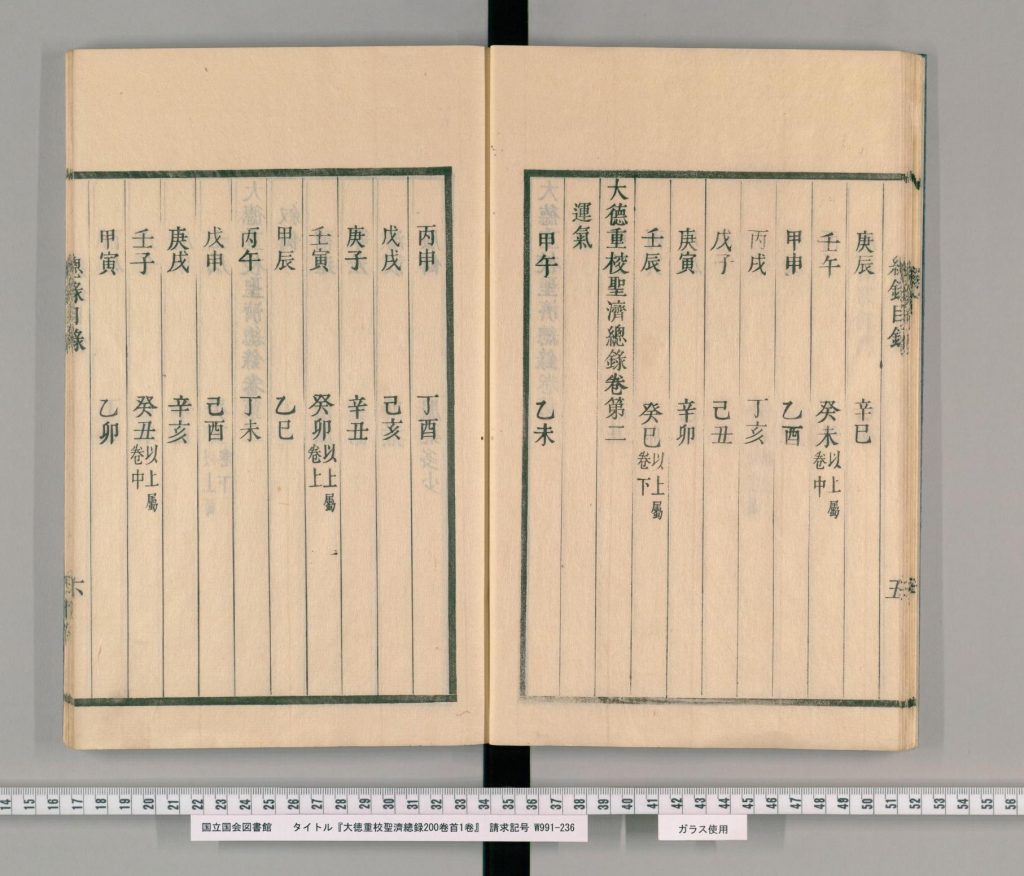 總錄目錄
五
庚辰 辛巳
壬午 癸未以上屬卷中
甲申 乙酉
丙戌 丁亥
戊子 己丑
庚寅 辛卯
壬辰 癸巳以上屬卷下
大德重校聖濟總錄卷第二
運氣
甲午 乙未
丙申 丁酉
戊戌 己亥
庚子 辛丑
壬寅 癸卯以上屬卷上
甲辰 乙巳
丙午 丁未
戊申 己酉
庚戌 辛亥
壬子 癸丑以上屬卷中
甲寅 乙卯
總錄目錄
六
14 15 16 17 18 19 20 21 22 23 24 25 26 27 28 29 30 31 32 33 34 35 36 37 38 39 40 41 42 43 44 45 46 47 48 49 50 51 52 53 54 55 56
国立国会図書館 タイトル『大徳重校聖濟總録200卷首1卷』 請求記号 W991-236
ガラス使用